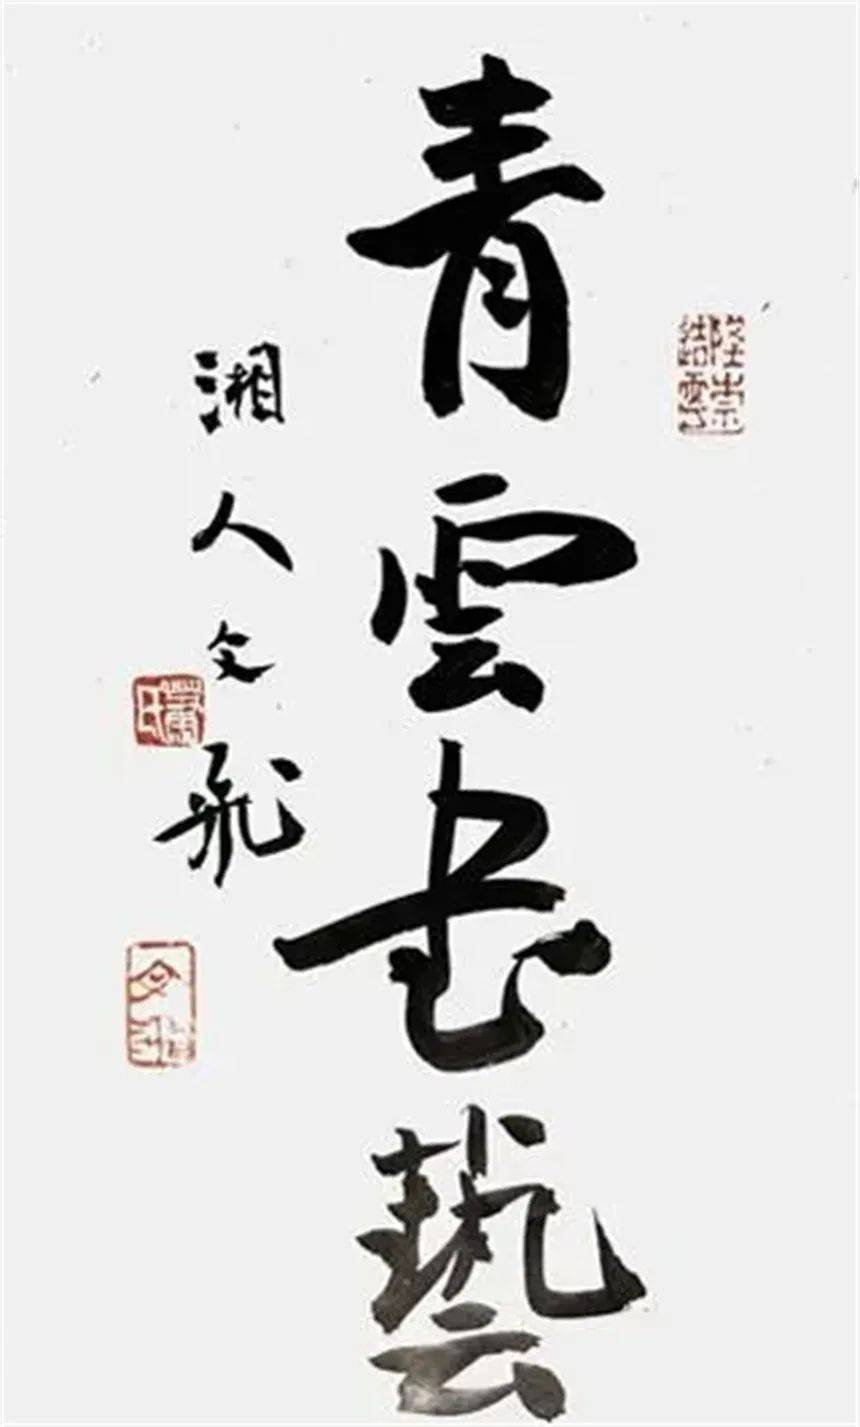 青雲书藝
湘人文飛